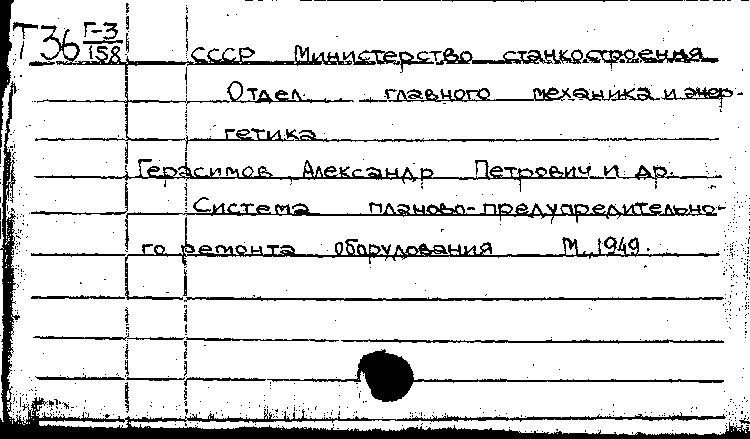 Т36 Г-3/158 СССР Министерство станкостроения
Отдел главного механика и энер-
гетика
Герасимов, Александр Петрович и др.
Система планово-предупредительно-
го ремонта оборудования М., 1949.